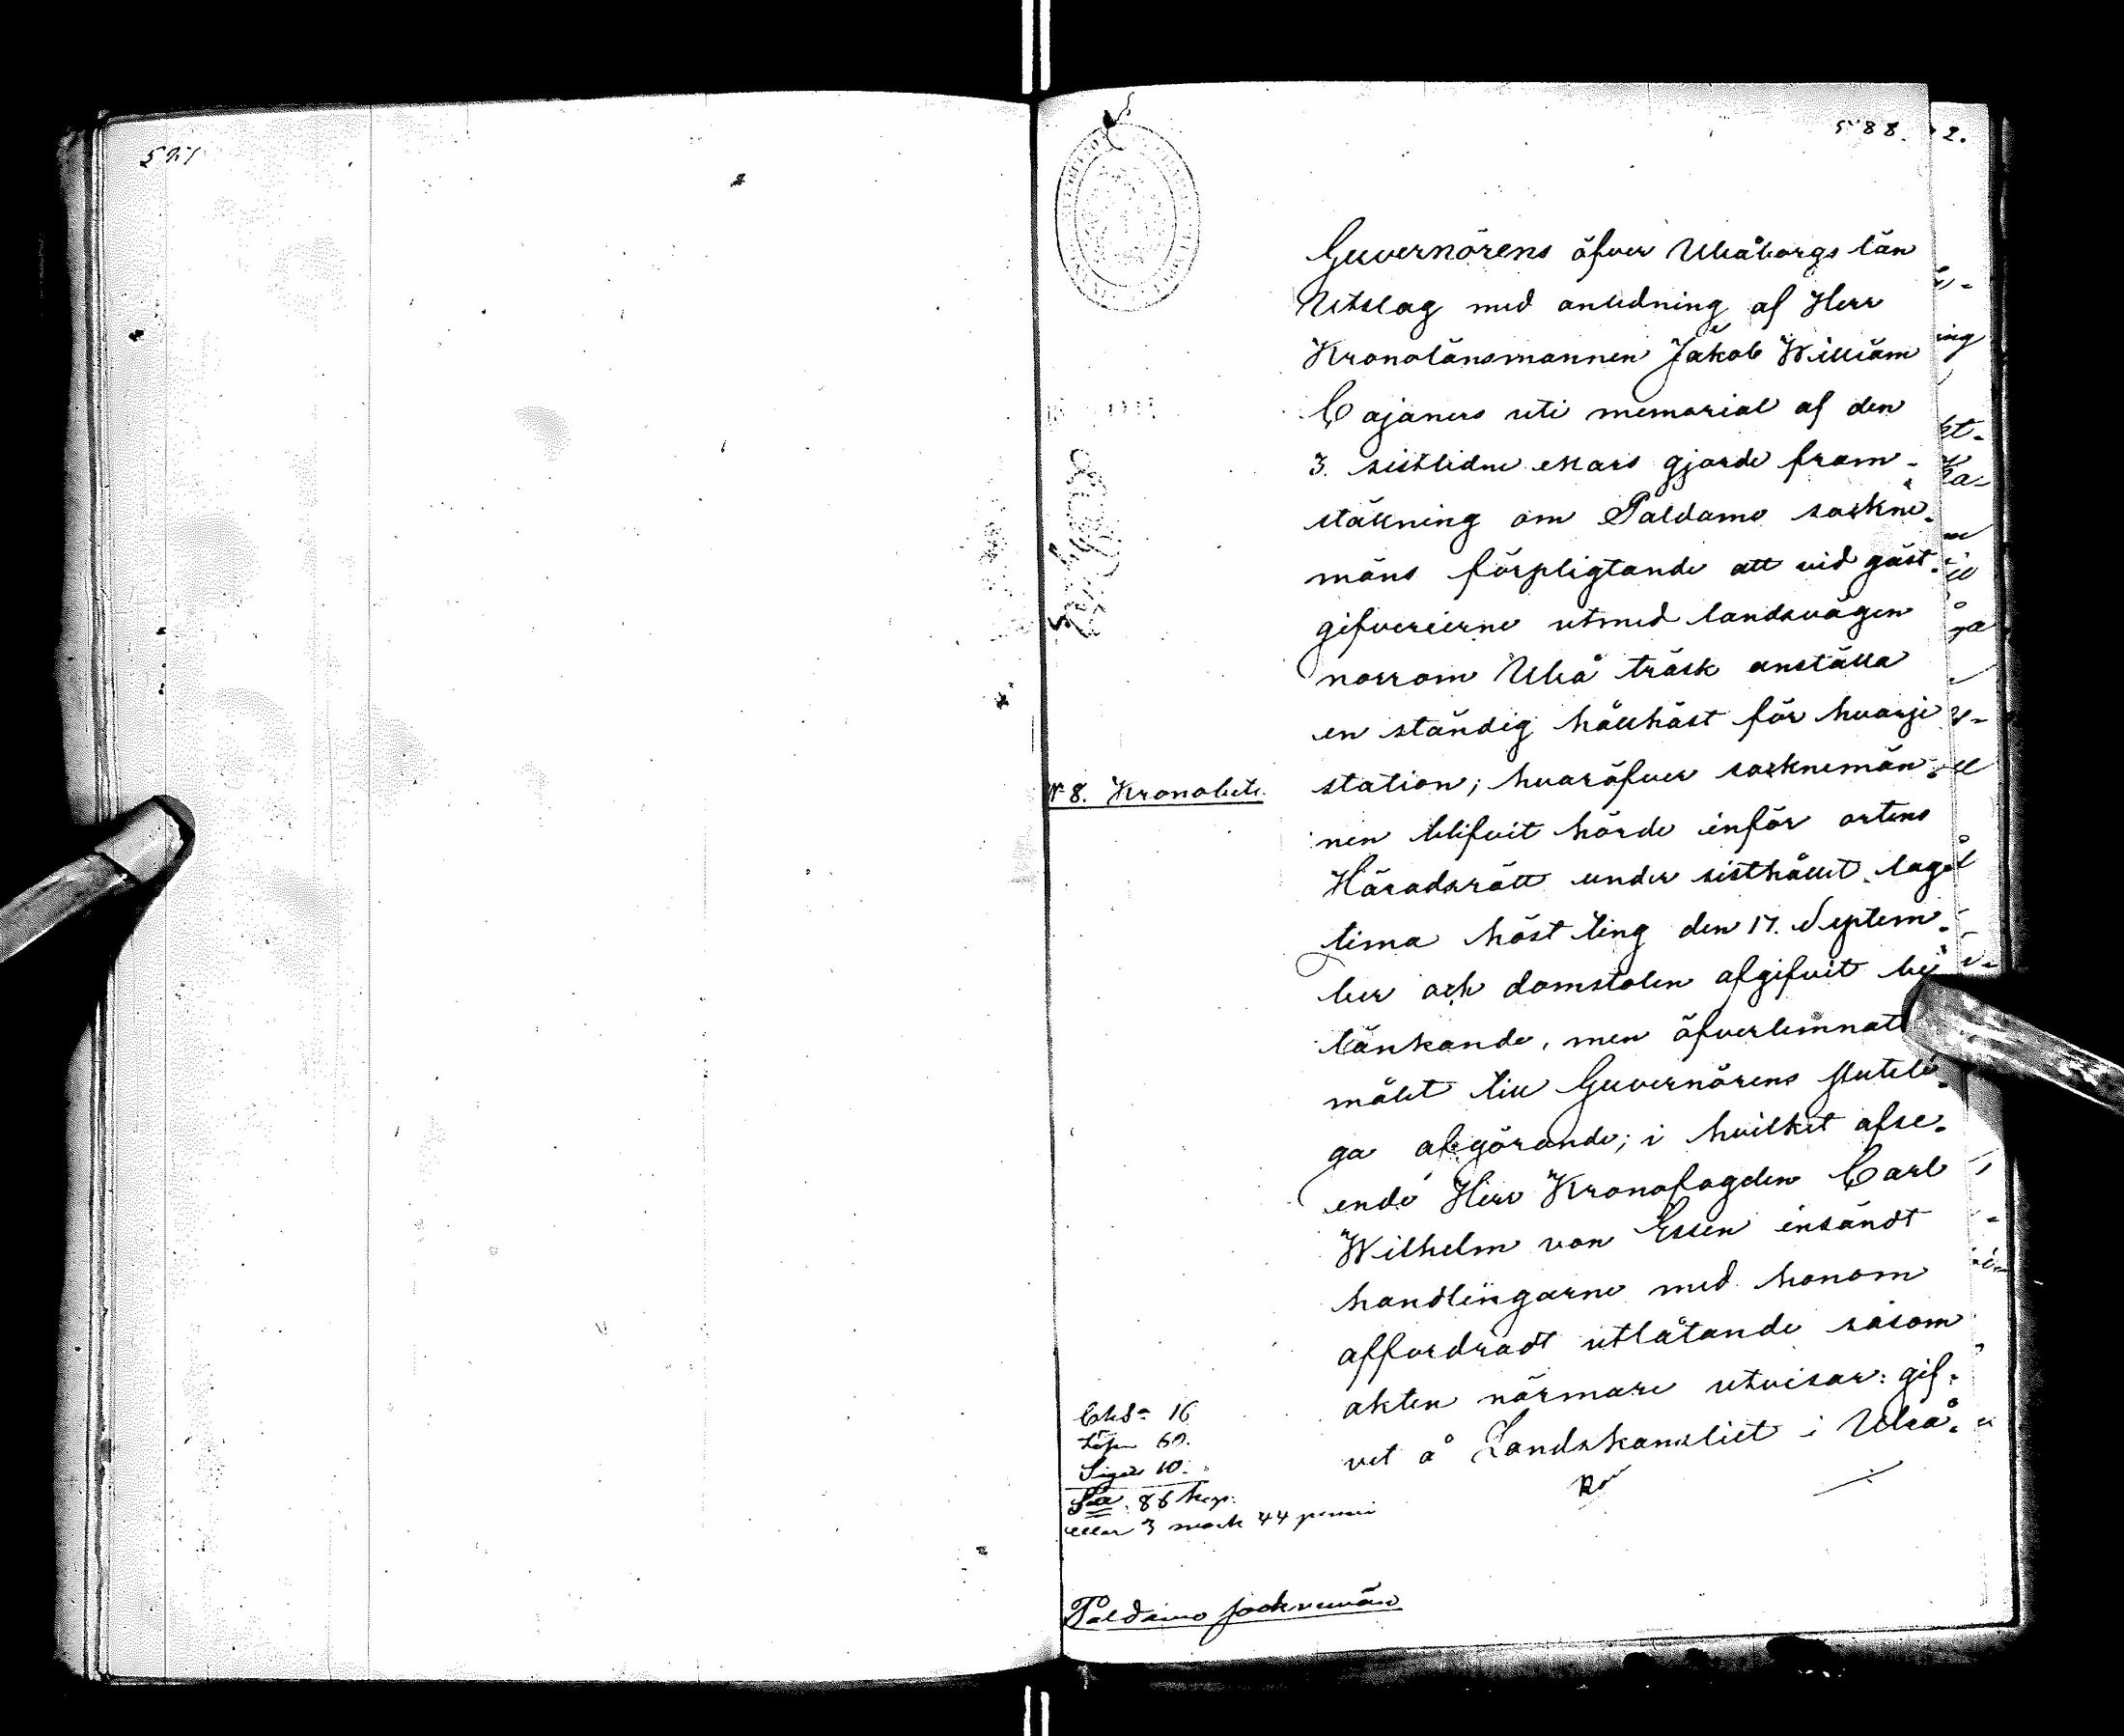 588.
Guvernörens öfver Uleåborgs län
Utslag med anledning af Herr
Kronolänsmannen Jakob William
Cajaners uti memorial af den
3. sistlidne Mars gjorde fram-
ställning om Paldamo sockne-
mäns förpligtande att vid gäst-
gifverierne utmed landsvägen
norrom Uleå träsk anställa
en ständig hållhäst för hvarje
station; hvaröfver socknemän-
nen blifvit hörde inför ortens
Häradsrätt under sisthållet lag-
tima höst ting den 17. Septem-
ber och domstolen afgifvit be-
tänkande, men öfverlemnat
målet till Guvernörens slutli-
ga afgörande; i hvilket afse-
ende Herr Kronofogden Carl
Wilhelm von Essen insändt
handlingarne med honom
affordradt utlåtande såsom
akten närmare utvisar: gif-
vet å Landskansliet i Uleå-
N 8. Kronobete.
16
Lösen 60.
Sigill 10.
S:a 86 kop.
eller 3 mark 44 penni
Paldamo socknemän